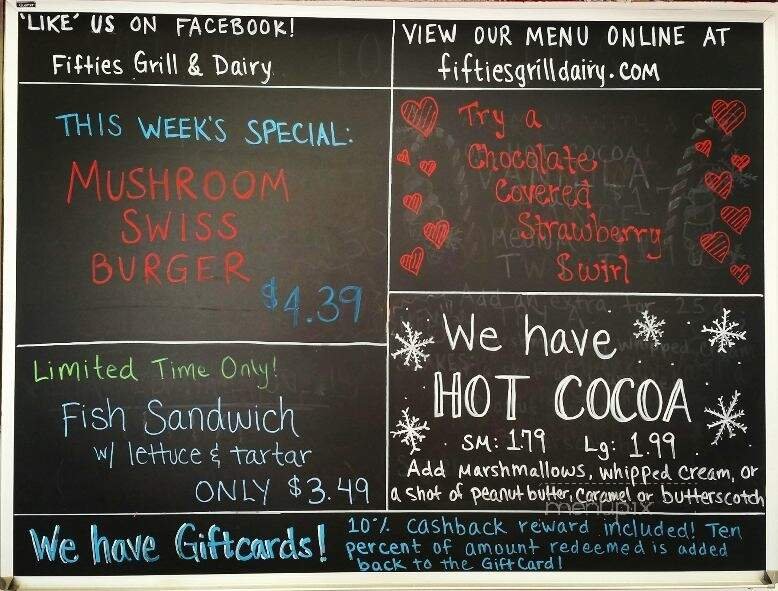 'LIKE' US ON FACEBOOK!
Fifties Grill & Dairy
VIEW OUR MENU ONLINE AT
fiftiesgrilldairy.com
THIS WEEK'S SPECIAL:
MUSHROOM
SWISS
BURGER
$4.39
Try a
Chocolate
Covered
Strawberry
Swirl
Limited Time Only!
Fish Sandwich
w/ lettuce & tartar
ONLY $3.49
We have
HOT COCOA
SM: 1.79 Lg: 1.99
Add Marshmallows, whipped cream, or
a shot of peanut butter, caramel or butterscotch
menupix
We have Giftcards!
10% cashback reward included! Ten
percent of amount redeemed is added
back to the Gift Card!